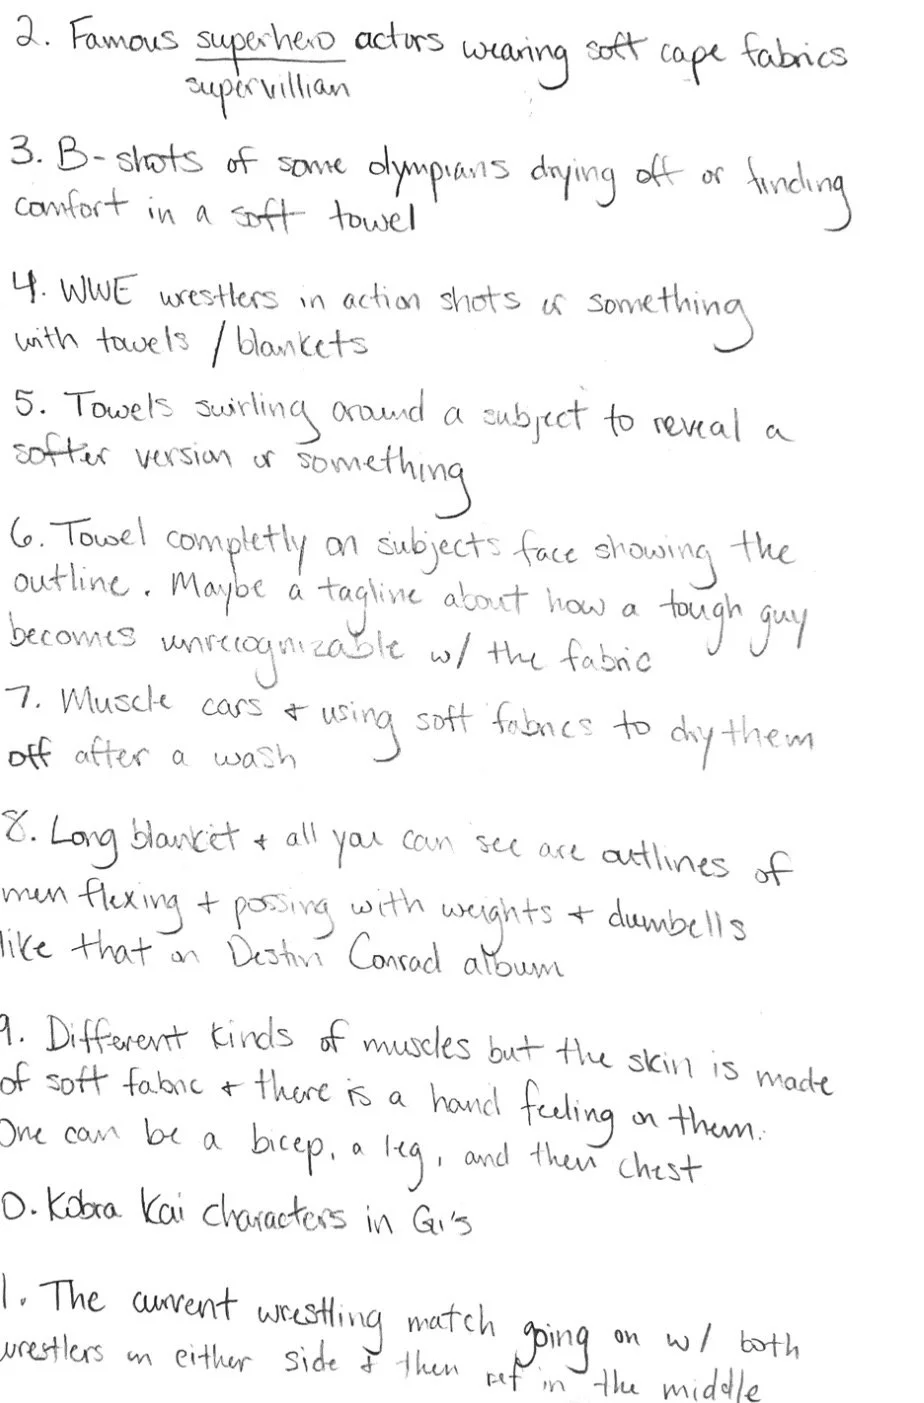 2. Famous superhero actors wearing soft cape fabrics
supervillian
3. B-shots of some olympians drying off or finding
comfort in a soft towel
4. WWE wrestlers in action shots or something
with towels / blankets
5. Towels swirling around a subject to reveal a
softer version or something
6. Towel completly on subjects face showing the
outline. Maybe a tagline about how a tough guy
becomes unrecognizable w/ the fabric
7. Muscle cars + using soft fabrics to dry them
off after a wash
8. Long blanket + all you can see are outlines of
men flexing + possing with weights + dumbells
like that on Destin Conrad album
9. Different kinds of muscles but the skin is made
of soft fabric + there is a hand feeling on them.
One can be a bicep, a leg, and then chest
0. Kobra Kai characters in Gi's
1. The current wrestling match going on w/ both
wrestlers on either side & then ref in the middle